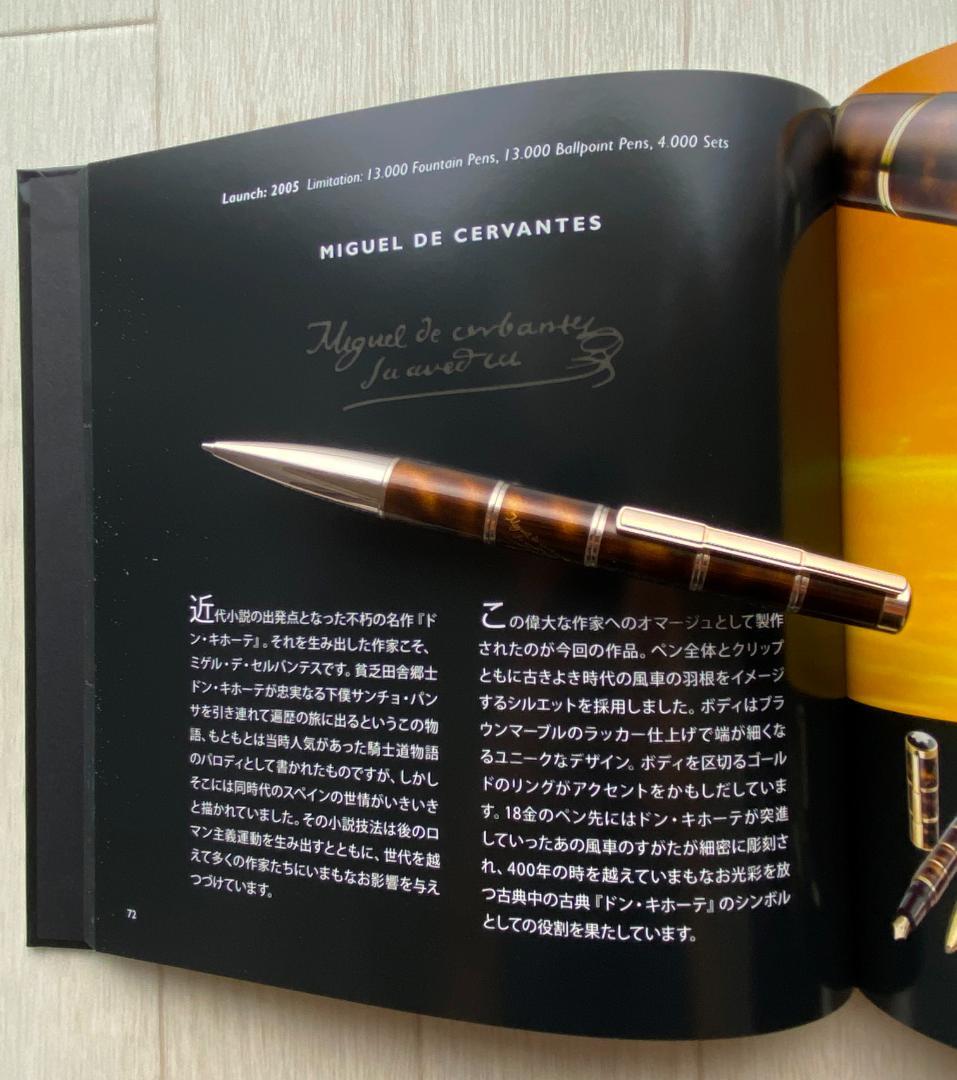 Launch: 2005 Limitation: 13.000 Fountain Pens, 13.000 Ballpoint Pens, 4.000 Sets
MIGUEL DE CERVANTES
Miguel de cerbantes
Saavedra
近代小説の出発点となった不朽の名作『ド
ン・キホーテ』。それを生み出した作家こそ、
ミゲル・デ・セルバンテスです。貧乏田舎郷士
ドン・キホーテが忠実なる下僕サンチョ・パン
サを引き連れて遍歴の旅に出るというこの物
語、もともとは当時人気があった騎士道物語
のパロディとして書かれたものですが、しかし
そこには同時代のスペインの世情がいきいき
と描かれていました。その小説技法は後のロ
マン主義運動を生み出すとともに、世代を越
えて多くの作家たちにいまもなお影響を与え
つづけています。
この偉大な作家へのオマージュとして製作
されたのが今回の作品。ペン全体とクリップ
ともに古きよき時代の風車の羽根をイメージ
するシルエットを採用しました。ボディはブラ
ウンマーブルのラッカー仕上げで端が細くな
るユニークなデザイン。ボディを区切るゴール
ドのリングがアクセントをかもしだしていま
す。18金のペン先にはドン・キホーテが突進
していったあの風車のすがたが細密に彫刻さ
れ、400年の時を越えていまもなお光彩を放
つ古典中の古典『ドン・キホーテ』のシンボル
としての役割を果たしています。
72